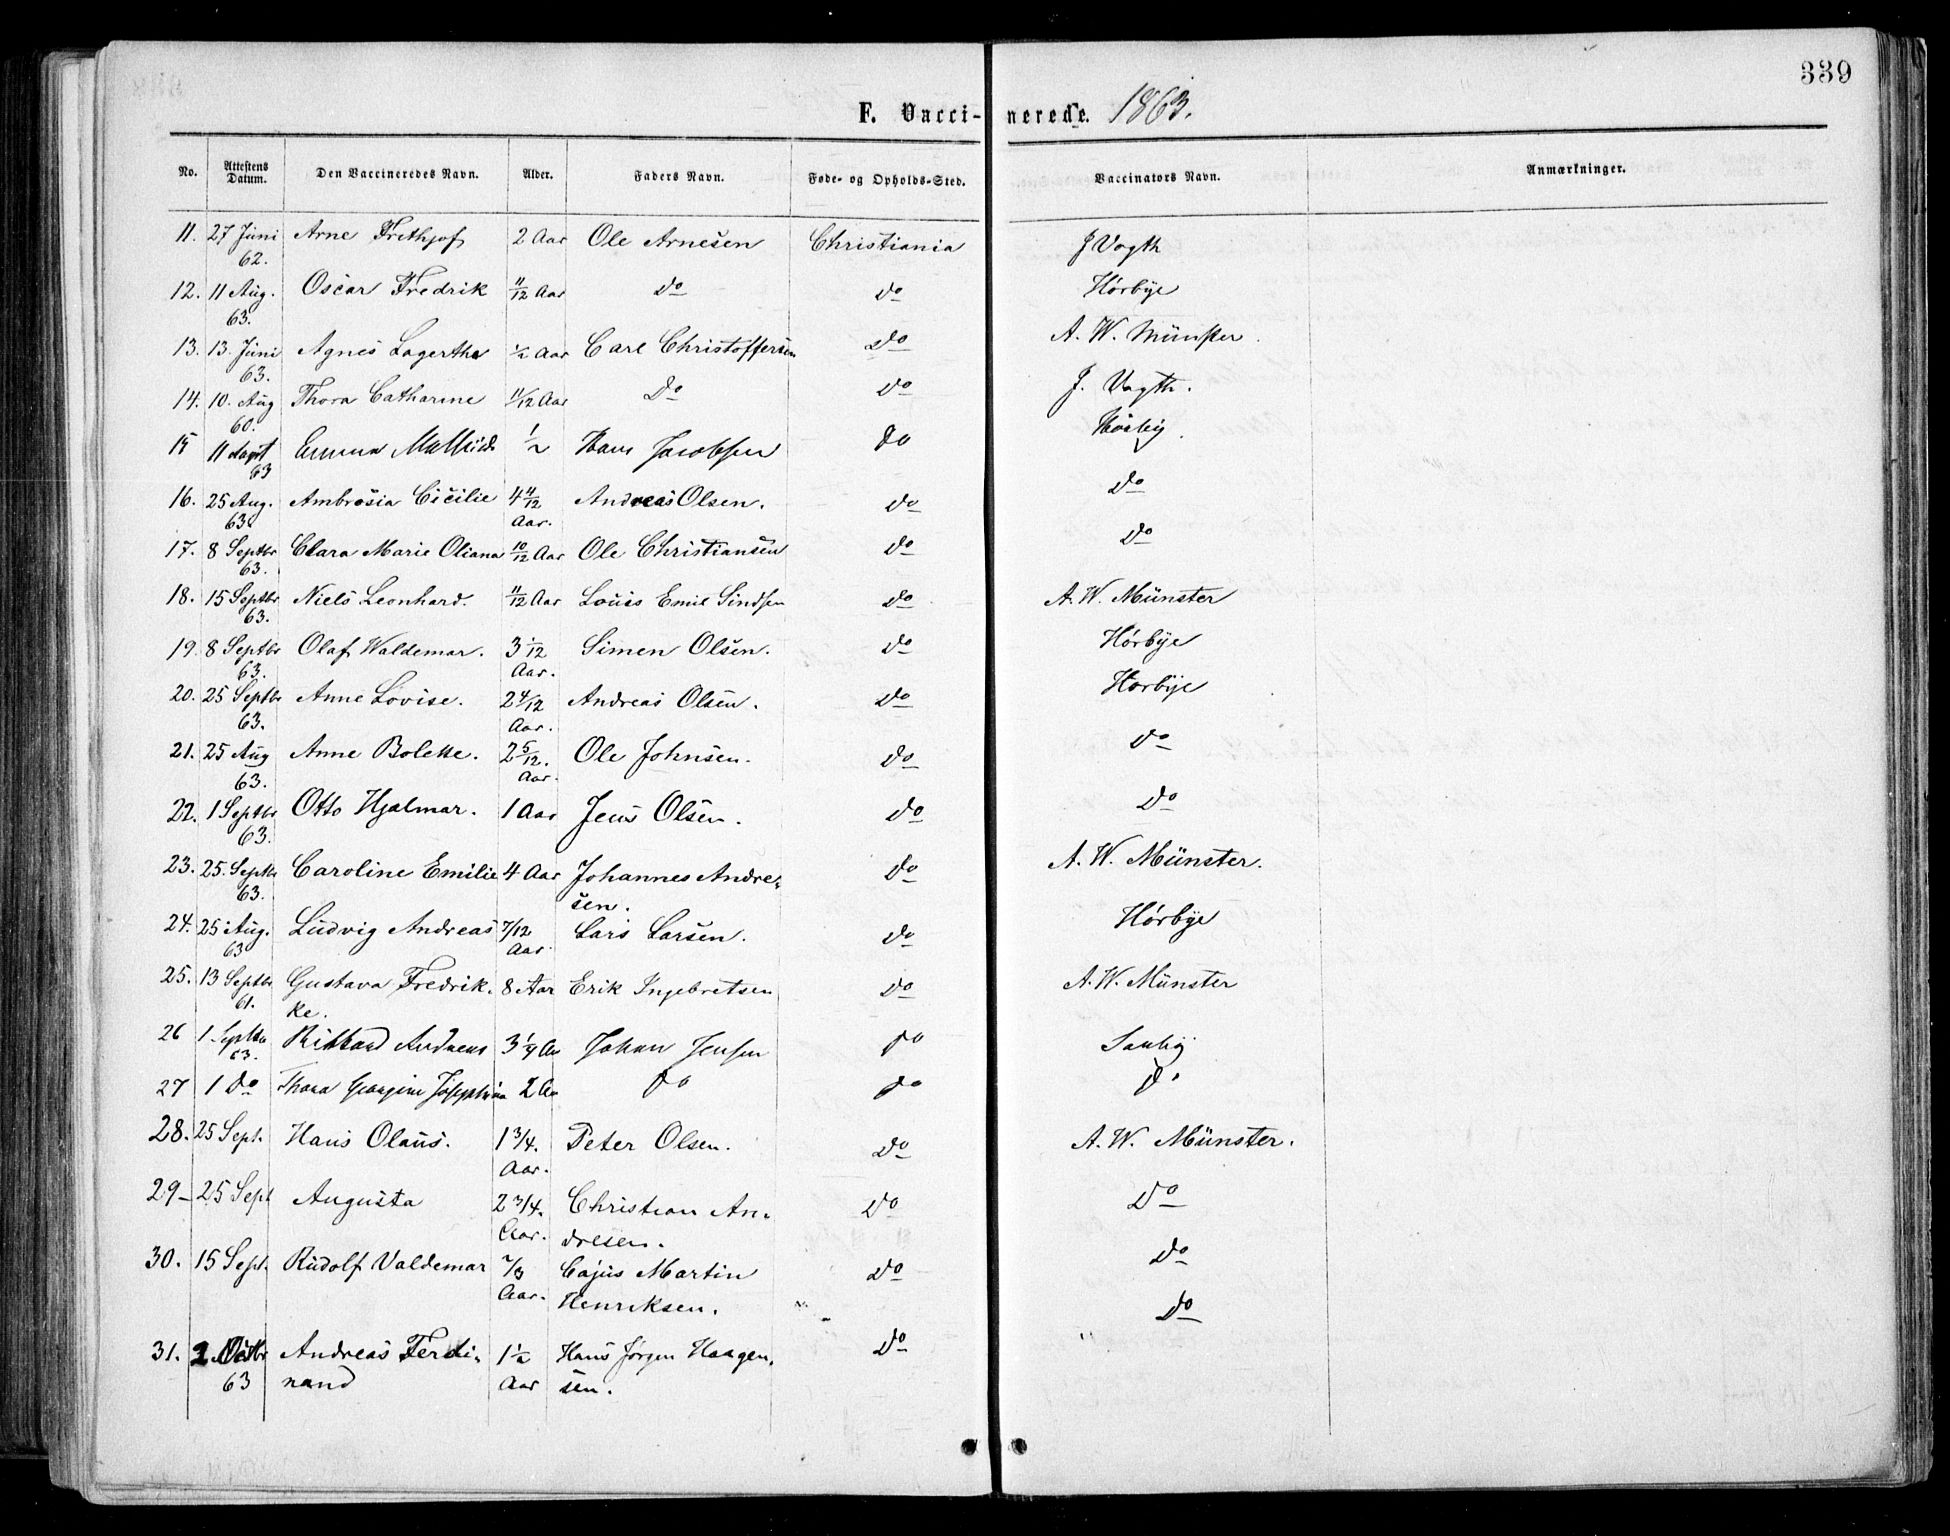 339
F. Vaccinerede. 1863.
No. Attestens Datum. Den Vaccineredes Navn. Alder. Faders Navn. Føde- og Opholds-Sted. Vaccinators Navn. Anmærkninger.
11. 27 Juni 62. Arne Frithjof 2 Aar Ole Arnesen Christiania J Vogth
12. 11 Aug. 63. Oscar Fredrik 11/12 Aar Do Do Hørbye
13. 13. Juni 63. Agnes Lagertha 1/2 Aar Carl Christoffersen Do A. W. Münster
14. 10. Aug 60. Thora Catharine 11/12 Aar Do Do J. Vogth.
15 11 August 63 Emma Mathilde 1/2 Hans Jacobsen Do Hörby
16. 25 Aug. 63. Ambrosia Cicilie 4 11/12 Aar. Andreas Olsen. Do Do
17. 8 Septbr 63. Clara Marie Oliana 10/12 Aar Ole Christiansen Do Do
18. 15 Septbr 63. Niels Leonhard. 11/12 Aar Louis Emil Sindsen Do A. W. Münster
19. 8 Septbr 63. Olaf Waldemar. 3 1/12 Aar. Simen Olsen. Do Hørbye
20. 25 Septbr 63. Anne Lovise. 2 4/12 Aar. Andreas Olsen. Do Hørbye
21. 25 Aug 63. Anne Bolette. 2 5/12. Aar. Ole Johnsen. Do Do
22. 1 Septbr 63. Otto Hjalmar. 1 Aar Jens Olsen. Do Do
23. 25. Septbr 63. Caroline Emilie 4 Aar Johannes Andresen. Do A. W. Münster.
24. 25 Aug. 63 Ludvig Andreas 7/12 Aar Lars Larsen. Do Hørbye
25. 13 Septbr 61. Gustava Fredrikke. 8 Aar Erik Ingebretsen Do A. W. Münster
26 1. Septbr 63. Rikhard Andreas 3 1/4 Aar Johan Jensen Do
27 1 Do Thora Georgine Josephine 2 Aar Do Do Do
28. 25 Sept. Hans Olaus. 1 3/4. Aar. Peter Olsen. Do A. W. Münster.
29 - 25 Sept Augusta 2 3/4. Aar. Christian Andresen. Do Do
30. 15 Sept. Rudolf Valdemar Aar. Cajus Martin Henriksen. Do Do
31. 2 Octbr 63 Andreas Ferdinand 1 1/2 Aar Hans Jørgen Haagensen. Do Do